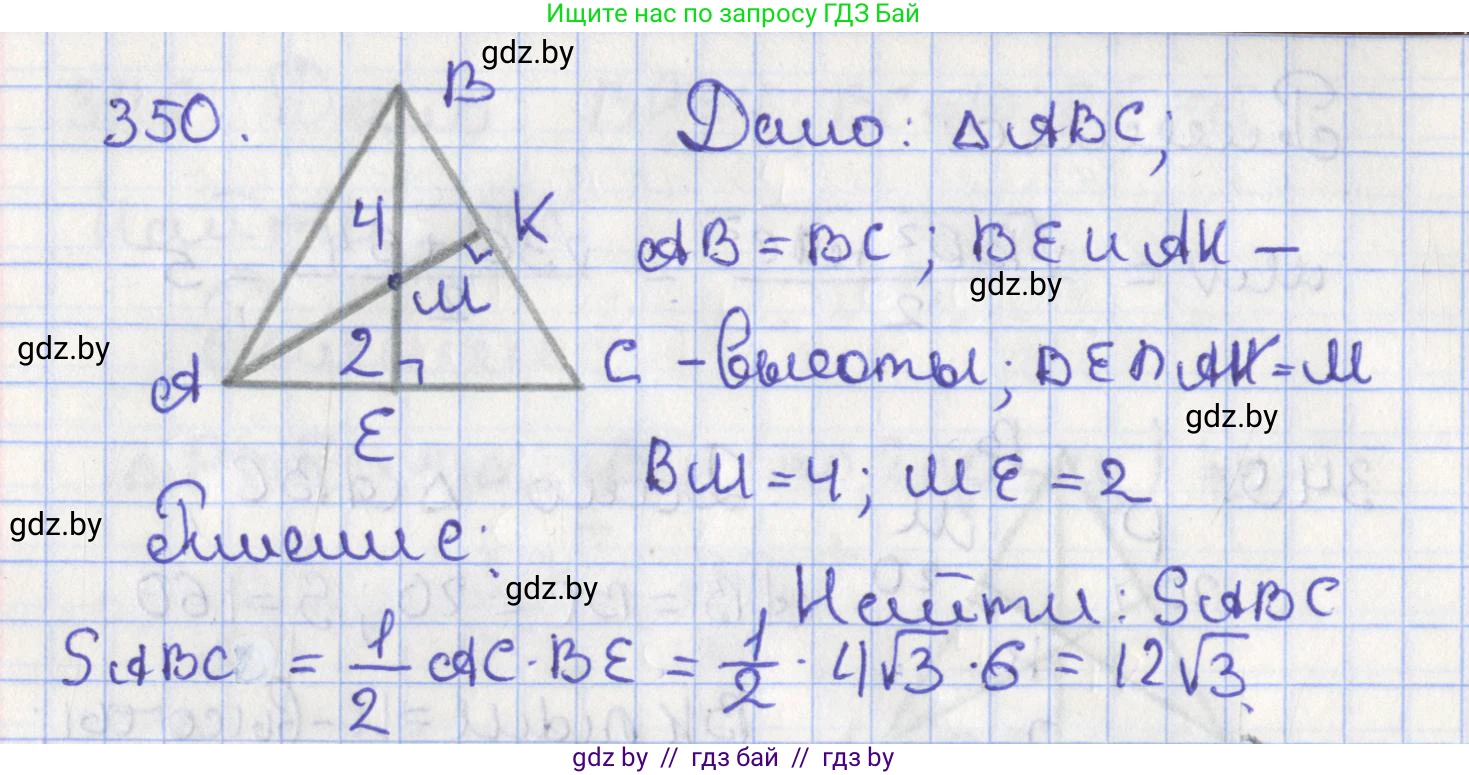 Ищите нас по запросу ГДЗ Бай
gdz.by
350.
B
Дано: △ABC;
4
K
AB = BC; BE и AK –
gdz.by
M
gdz.by
2
A
C
– высоты; BE ∩ AK = M
gdz.by
E
BM = 4; ME = 2
gdz.by
Решение:
gdz.by
Найти: SABC
SABC = 1/2 AC · BE = 1/2 · 4√3 · 6 = 12√3.
gdz by // гдз бай // гдз by